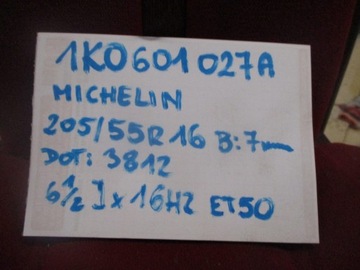 1K0601027A
MICHELIN
205/55R16 B:7mm
DOT: 3812
6 1/2 J x 16H2 ET50